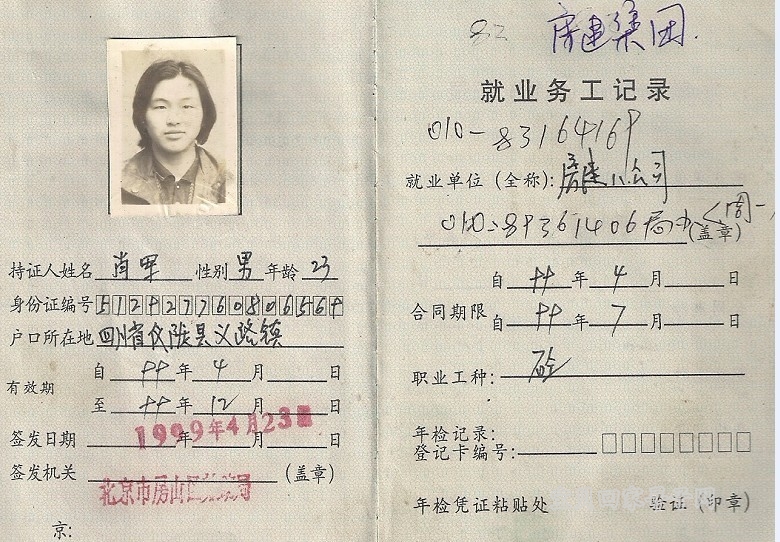 持证人姓名 肖军 性别 男 年龄 23
身份证编号 512927760806569
户口所在地 四川省仪陇县义路镇
有效期
自 99 年 4 月 日
至 99 年 12 月 日
签发日期 年 月 日
1999年4月23日
签发机关 (盖章)
北京市房山区劳动局
京:
房建集团.
就业务工记录
010-83164169
就业单位 (全称): 房建八公司
010-89361406
(盖章)
合同期限
自 99 年 4 月 日
自 99 年 7 月 日
职业工种: 砼
年检记录:
登记卡编号:
年检凭证粘贴处 验证 (印章)